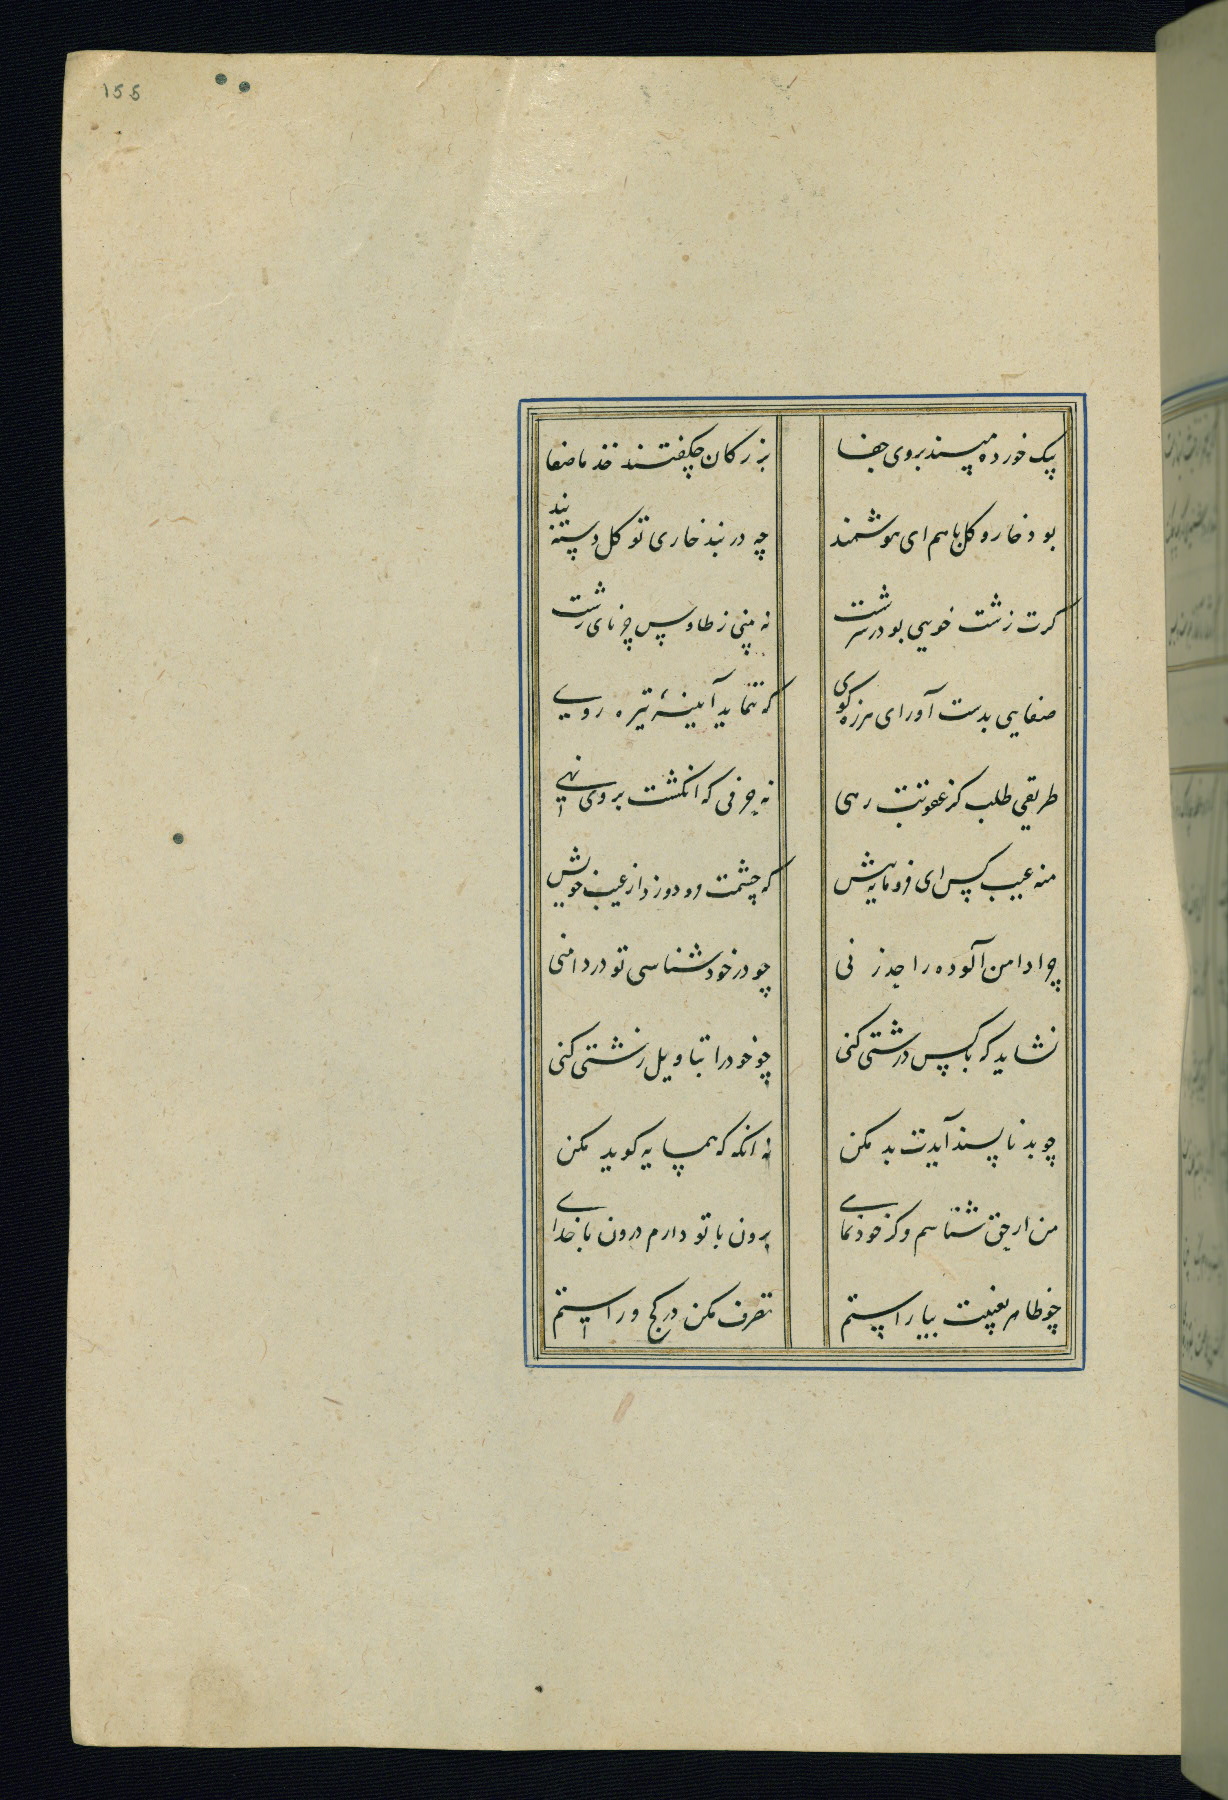 155
بیک خورده مپسند بر وی جفا
بزرکان چکفتند خذ ما صفا
بود خار و کل با هم ای هوشمند
چه در بند خاری تو کل دسته بند
کرت زشت خویی بود در سرشت
نه بینی ز طاوس جز پای زشت
صفایی بدست آور ای هرزه کوی
که ننماید آیینهٔ تیره روی
طریقی طلب کز عقوبت رهی
نه حرفی که انکشت بر وی نهی
منه عیب کس ای فرومایه پیش
که چشمت فرو دوزد از عیب خویش
چرا دامن آلوده را حد زنی
چو در خود شناسی تر دامنی
نشاید که با کس درشتی کنی
چو خود را بتاویل پشتی کنی
چو بد ناپسند آیدت بد مکن
نه انکه که همسایه کوید مکن
من ار حق شناسم وکر خود نمای
برون با تو دارم درون با خدای
چو ظاهر بعفت بیاراستم
تصرف مکن در کج و راستم